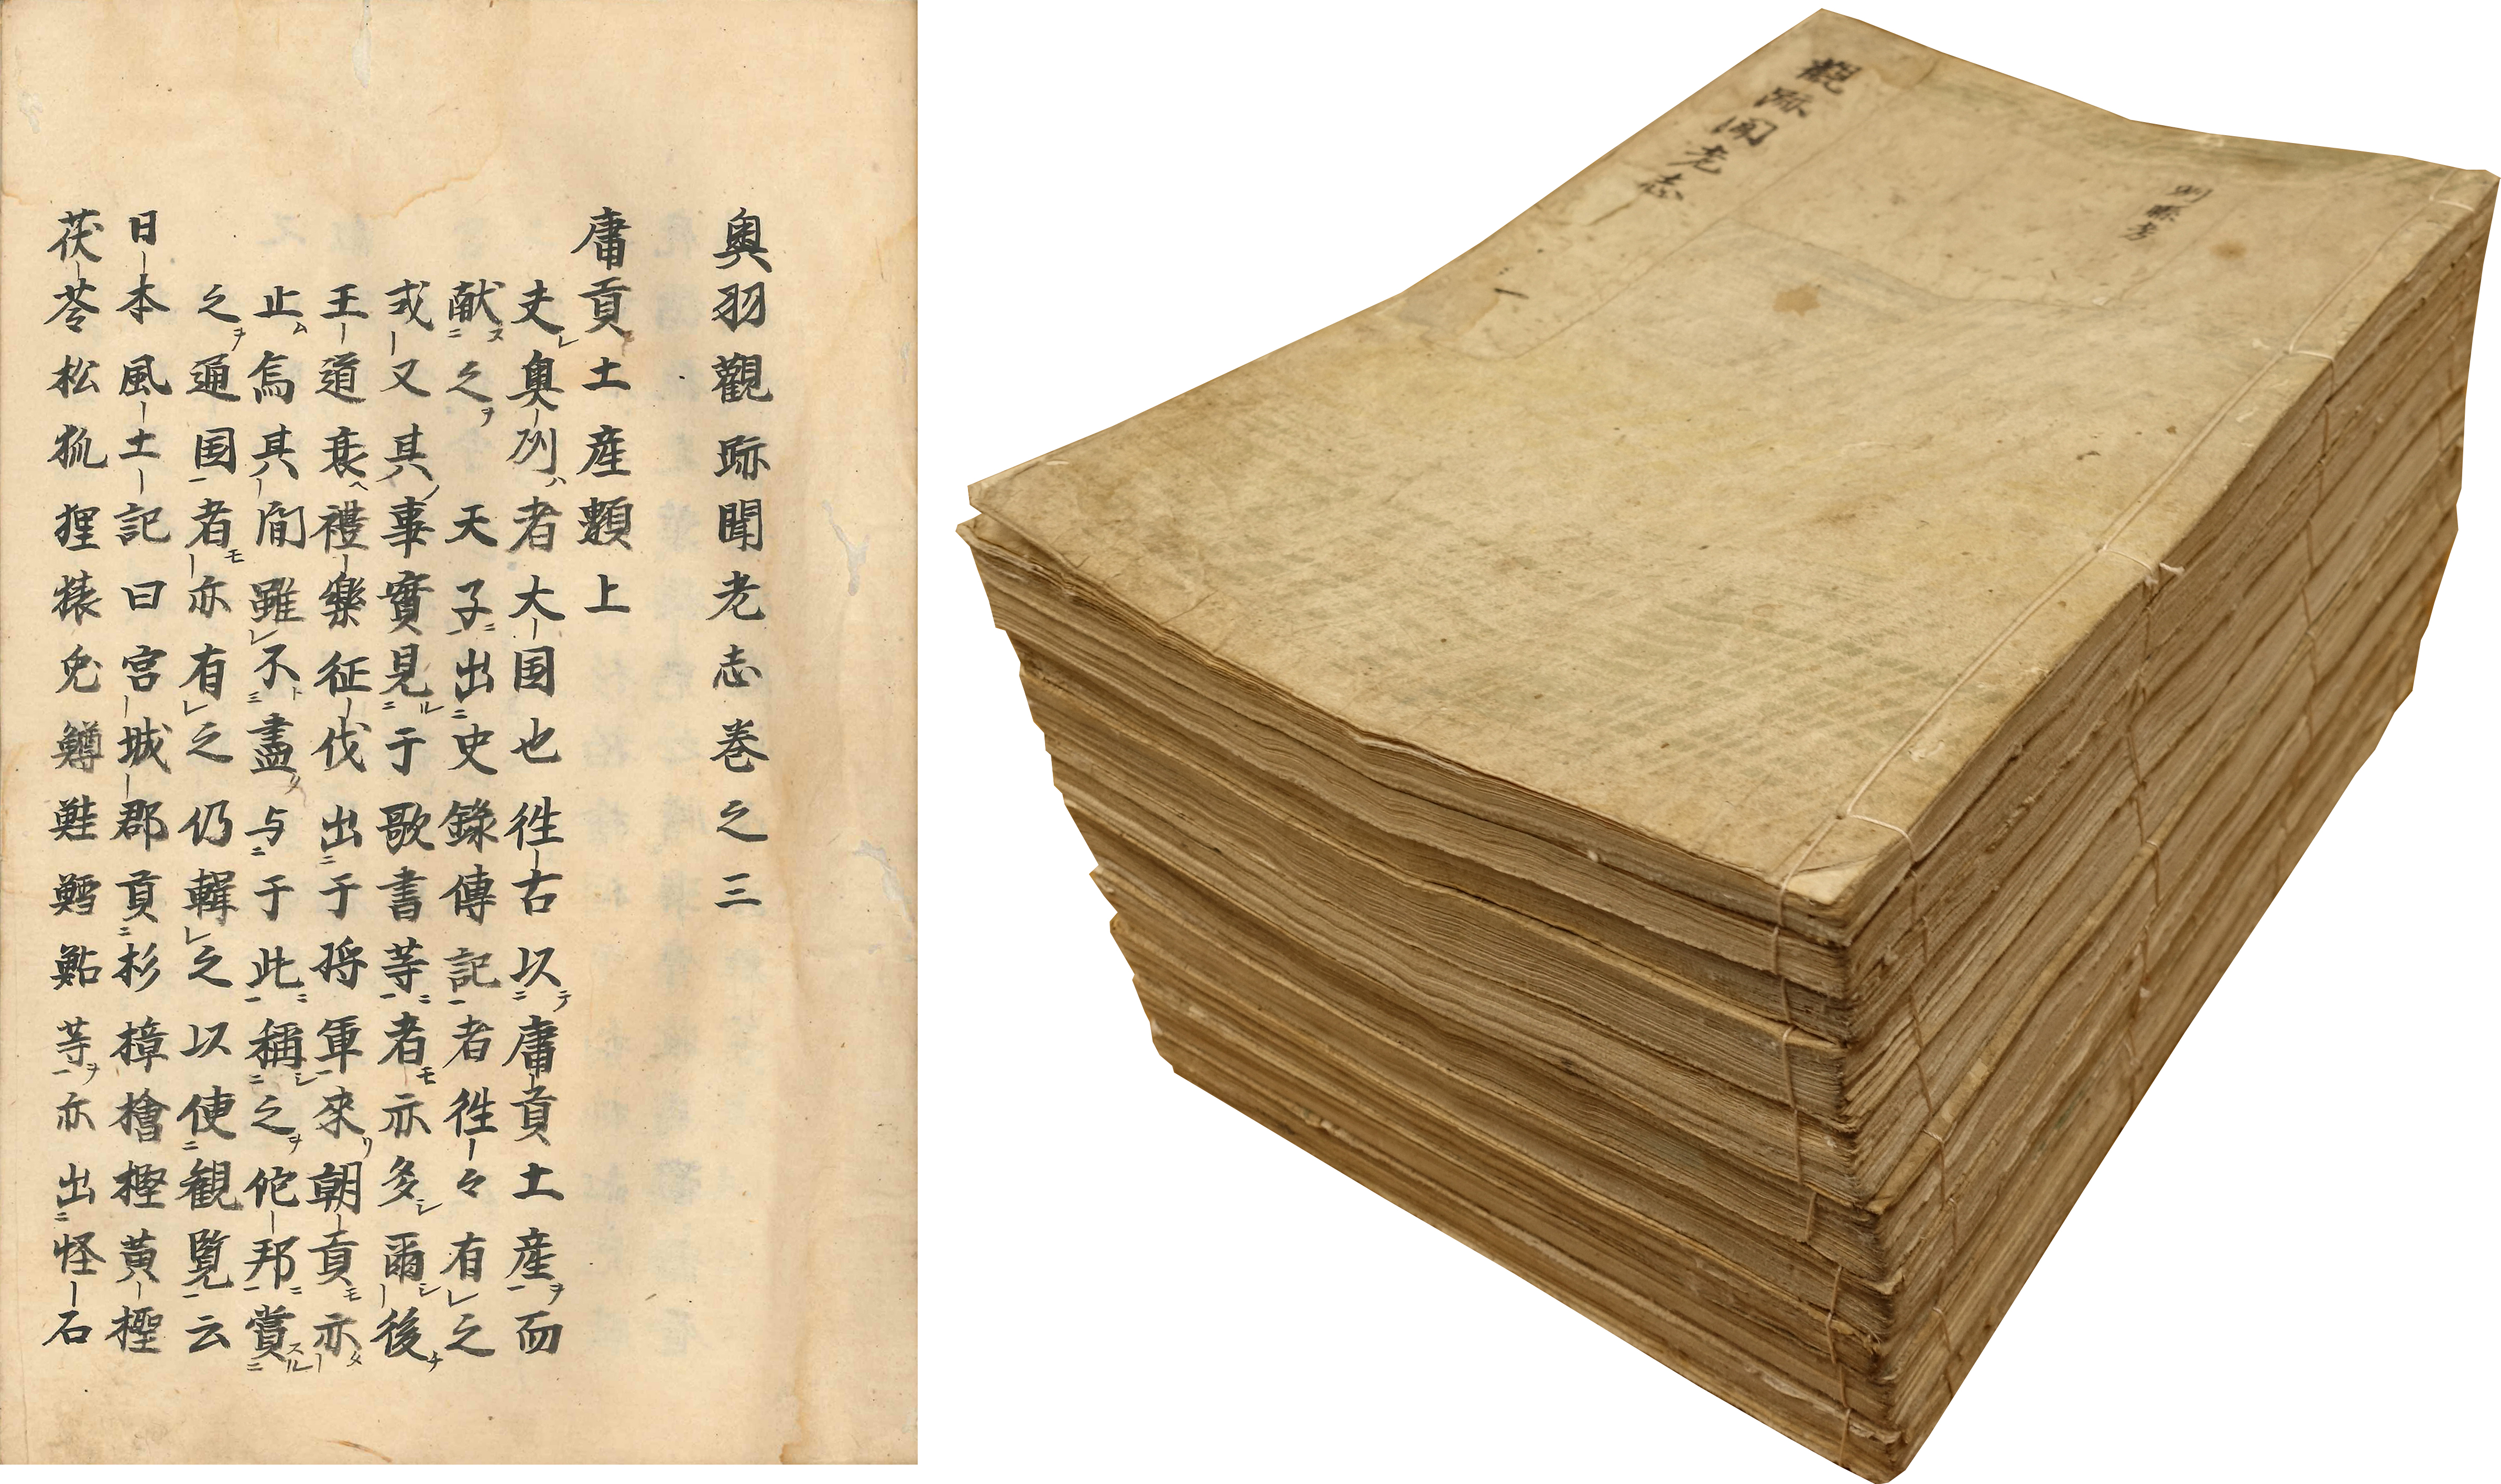 奧羽觀跡聞老志卷之三
庸貢土産類上
夫奥州者大国也徃古以庸貢土産而
献之天子出史錄傳記者徃々有之
或又其事實見于歌書等者亦多爾後
王道衰禮樂征伐出于将軍來朝貢亦
止焉其間雖不盡与于此稱之佗邦賞
之通国者亦有之仍輯之以使観覧云
日本風土記曰宮城郡貢杉樟檜樫黄樫
茯苓松狐狸猿兎鱒鮭鱈鮎等亦出怪石
觀跡聞老志
一